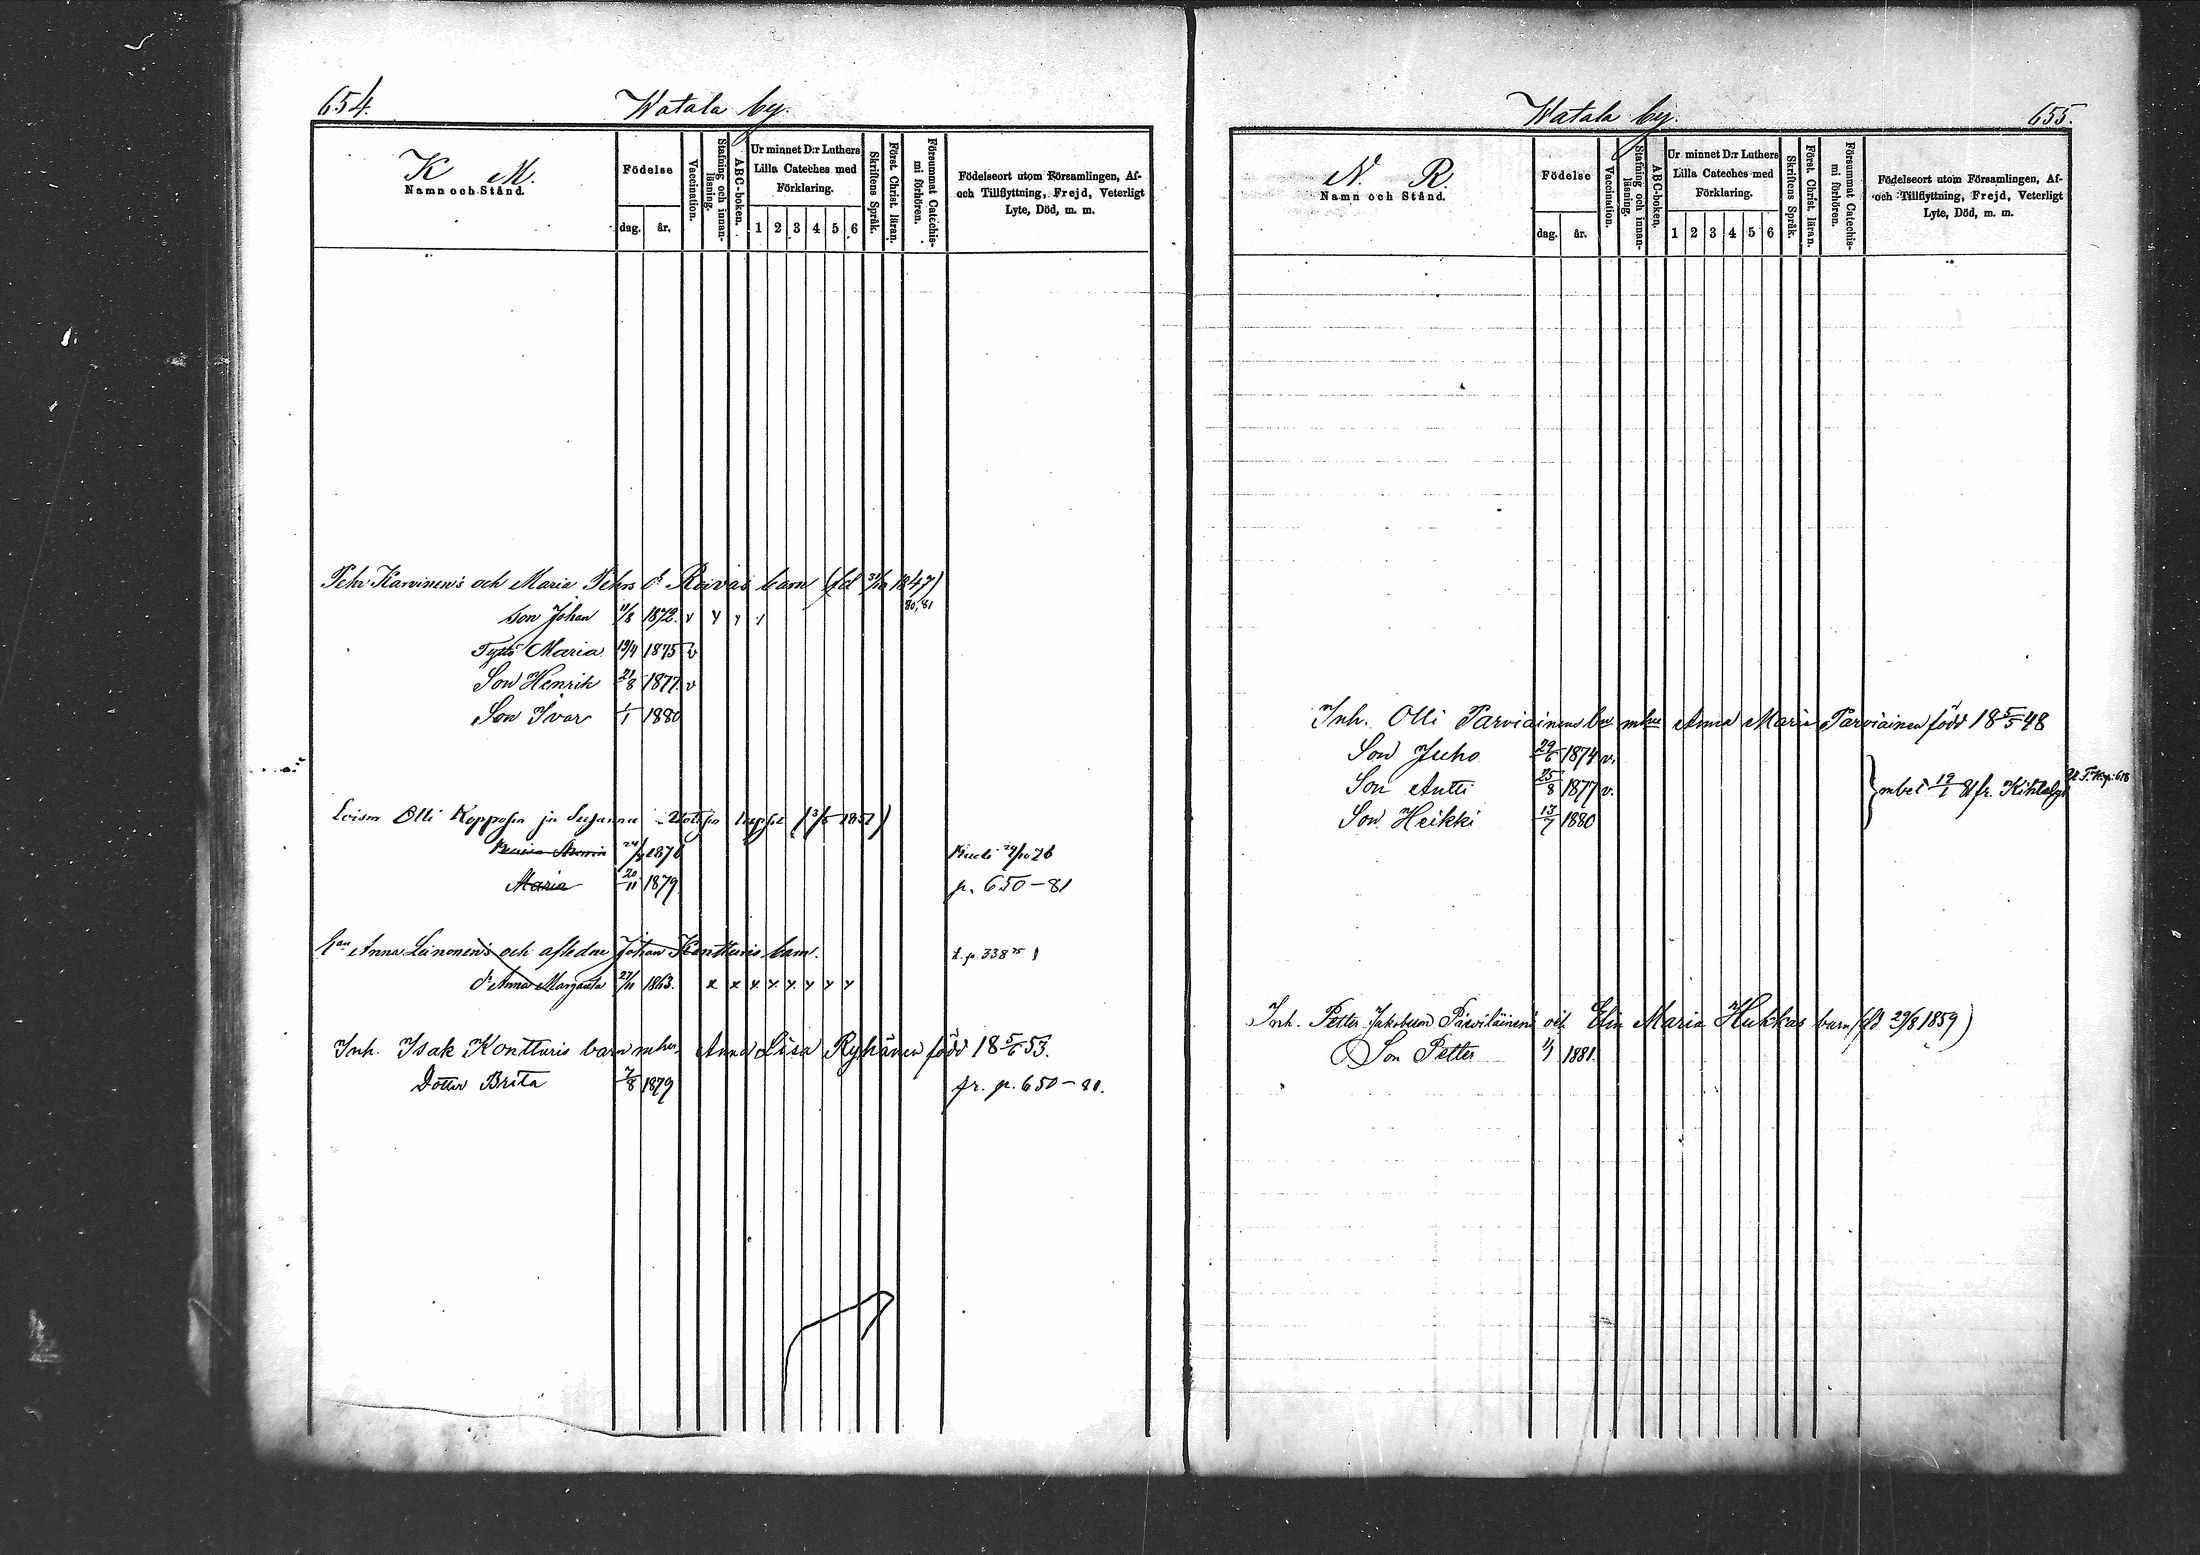 654.
Watala by.
K M.
Namn och Stånd.
Födelse
dag. år.
Vaccination.
Stafning och innanläsning.
ABC-boken.
Ur minnet D:r Luthers
Lilla Cateches med
Förklaring.
1 2 3 4 5 6
Skriftens Språk.
Först. Christ. läran.
Försummat Catechismi förhören.
Födelseort utom Församlingen, Af-
och Tillflyttning, Frejd, Veterligt
Lyte, Död, m. m.
Pehr Karvinen's och Maria Pehrs d. Roivas barn (fd 31/10 1847)
80, 81
son Johan 11/8 1872. v y y
Maria 19/4 1875 v
Son Henrik 21/8 1877. v
Son Ivar 1/1 1880
Loisen Olli Kopposen ja Susanna
24/ 1876 29/10 76
Maria 20/11 1879 p. 650-81
Anna Leinonen's och afledne Johan Kontturis barn.
d. Anna Margareta 27/11 1863. x x y. y. y y y y
Inh. Isak Kontturis barn m hu Anna Lisa Ryhänen född 18 5/6 53.
Dotter Brita 7/8 1879 fr. p. 650-81.
Watala by.
655.
N. R.
Namn och Stånd.
Födelse
dag. år.
Vaccination.
Stafning och innanläsning.
ABC-boken.
Ur minnet D:r Luthers
Lilla Cateches med
Förklaring.
1 2 3 4 5 6
Skriftens Språk.
Först. Christ. läran.
Försummat Catechismi förhören.
Födelseort utom Församlingen, Af-
och Tillflyttning, Frejd, Veterligt
Lyte, Död, m. m.
Inh. Olli Parviainens bn m hu Anna Maria Parviainen född 18 5/5 48
Son Juho 29/6 1874 v.
Son Antti 25/8 1877 v. m bet 19/1 81 fr. Kihtelys
Son Heikki 13/7 1880
Inh. Petter Jakobsson Päiviläinens och Elin Maria Hukkas barn (fd 29/8 1859)
Son Petter 1/1 1881.